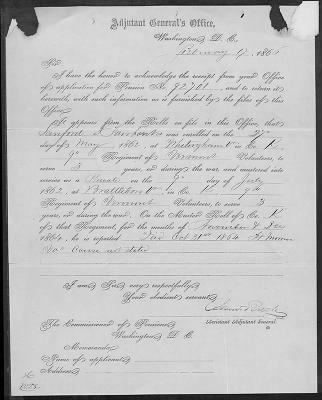 Adjutant General's Office,
Washington, D. C.
February 9, 1865
Sir:
I have the honor to acknowledge the receipt from your Office
of application for Pension No. 82761, and to return it
herewith, with such information as is furnished by the files of this
Office.
It appears from the Rolls on file in this Office, that
was enrolled on the
day of May, 1862, at in Co. K,
9" Regiment of Vermont Volunteers, to
serve 3 years, or during the war, and mustered into
service as a Private on the 9" day of July,
1862, at Brattleboro Vt, in Co. K 9th
Regiment of Vermont Volunteers, to serve 3
years, or during the war. On the Muster Roll of Co. K
of that Regiment, for the months of November & Dec
1864, he is reported Died Oct 21st 1864 Ft Monroe
Va" Cause not stated
I am, Sir, very respectfully,
Your obedient servant,
Assistant Adjutant General.
The Commissioner of Pensions,
Washington, D. C.
Memoranda:
Name of applicant,
Address,